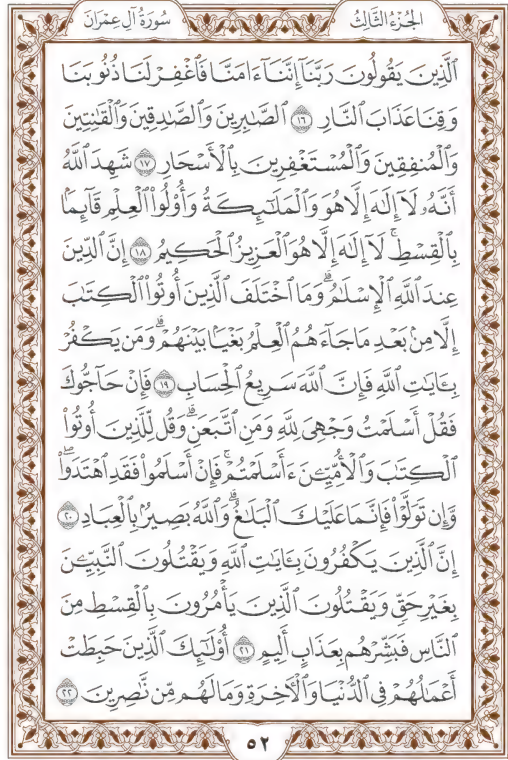 الجُزْءُ الثَّالِثُ
سُورَةُ آلِ عِمْرَانَ
ٱلَّذِينَ يَقُولُونَ رَبَّنَآ إِنَّنَآ ءَامَنَّا فَٱغْفِرْ لَنَا ذُنُوبَنَا
وَقِنَا عَذَابَ ٱلنَّارِ ١٦ ٱلصَّٰبِرِينَ وَٱلصَّٰدِقِينَ وَٱلْقَٰنِتِينَ
وَٱلْمُنفِقِينَ وَٱلْمُسْتَغْفِرِينَ بِٱلْأَسْحَارِ ١٧ شَهِدَ ٱللَّهُ
أَنَّهُۥ لَآ إِلَٰهَ إِلَّا هُوَ وَٱلْمَلَٰٓئِكَةُ وَأُو۟لُوا۟ ٱلْعِلْمِ قَآئِمًۢا
بِٱلْقِسْطِۚ لَآ إِلَٰهَ إِلَّا هُوَ ٱلْعَزِيزُ ٱلْحَكِيمُ ١٨ إِنَّ ٱلدِّينَ
عِندَ ٱللَّهِ ٱلْإِسْلَٰمُۗ وَمَا ٱخْتَلَفَ ٱلَّذِينَ أُوتُوا۟ ٱلْكِتَٰبَ
إِلَّا مِنۢ بَعْدِ مَا جَآءَهُمُ ٱلْعِلْمُ بَغْيًۢا بَيْنَهُمْۗ وَمَن يَكْفُرْ
بِـَٔايَٰتِ ٱللَّهِ فَإِنَّ ٱللَّهَ سَرِيعُ ٱلْحِسَابِ ١٩ فَإِنْ حَآجُّوكَ
فَقُلْ أَسْلَمْتُ وَجْهِىَ لِلَّهِ وَمَنِ ٱتَّبَعَنِۗ وَقُل لِّلَّذِينَ أُوتُوا۟
ٱلْكِتَٰبَ وَٱلْأُمِّيِّـۧنَ ءَأَسْلَمْتُمْۚ فَإِنْ أَسْلَمُوا۟ فَقَدِ ٱهْتَدَوا۟ۖ
وَّإِن تَوَلَّوْا۟ فَإِنَّمَا عَلَيْكَ ٱلْبَلَٰغُۗ وَٱللَّهُ بَصِيرٌۢ بِٱلْعِبَادِ ٢٠
إِنَّ ٱلَّذِينَ يَكْفُرُونَ بِـَٔايَٰتِ ٱللَّهِ وَيَقْتُلُونَ ٱلنَّبِيِّـۧنَ
بِغَيْرِ حَقٍّ وَيَقْتُلُونَ ٱلَّذِينَ يَأْمُرُونَ بِٱلْقِسْطِ مِنَ
ٱلنَّاسِ فَبَشِّرْهُم بِعَذَابٍ أَلِيمٍ ٢١ أُو۟لَٰٓئِكَ ٱلَّذِينَ حَبِطَتْ
أَعْمَٰلُهُمْ فِى ٱلدُّنْيَا وَٱلْءَاخِرَةِ وَمَا لَهُم مِّن نَّٰصِرِينَ ٢٢
٥٢